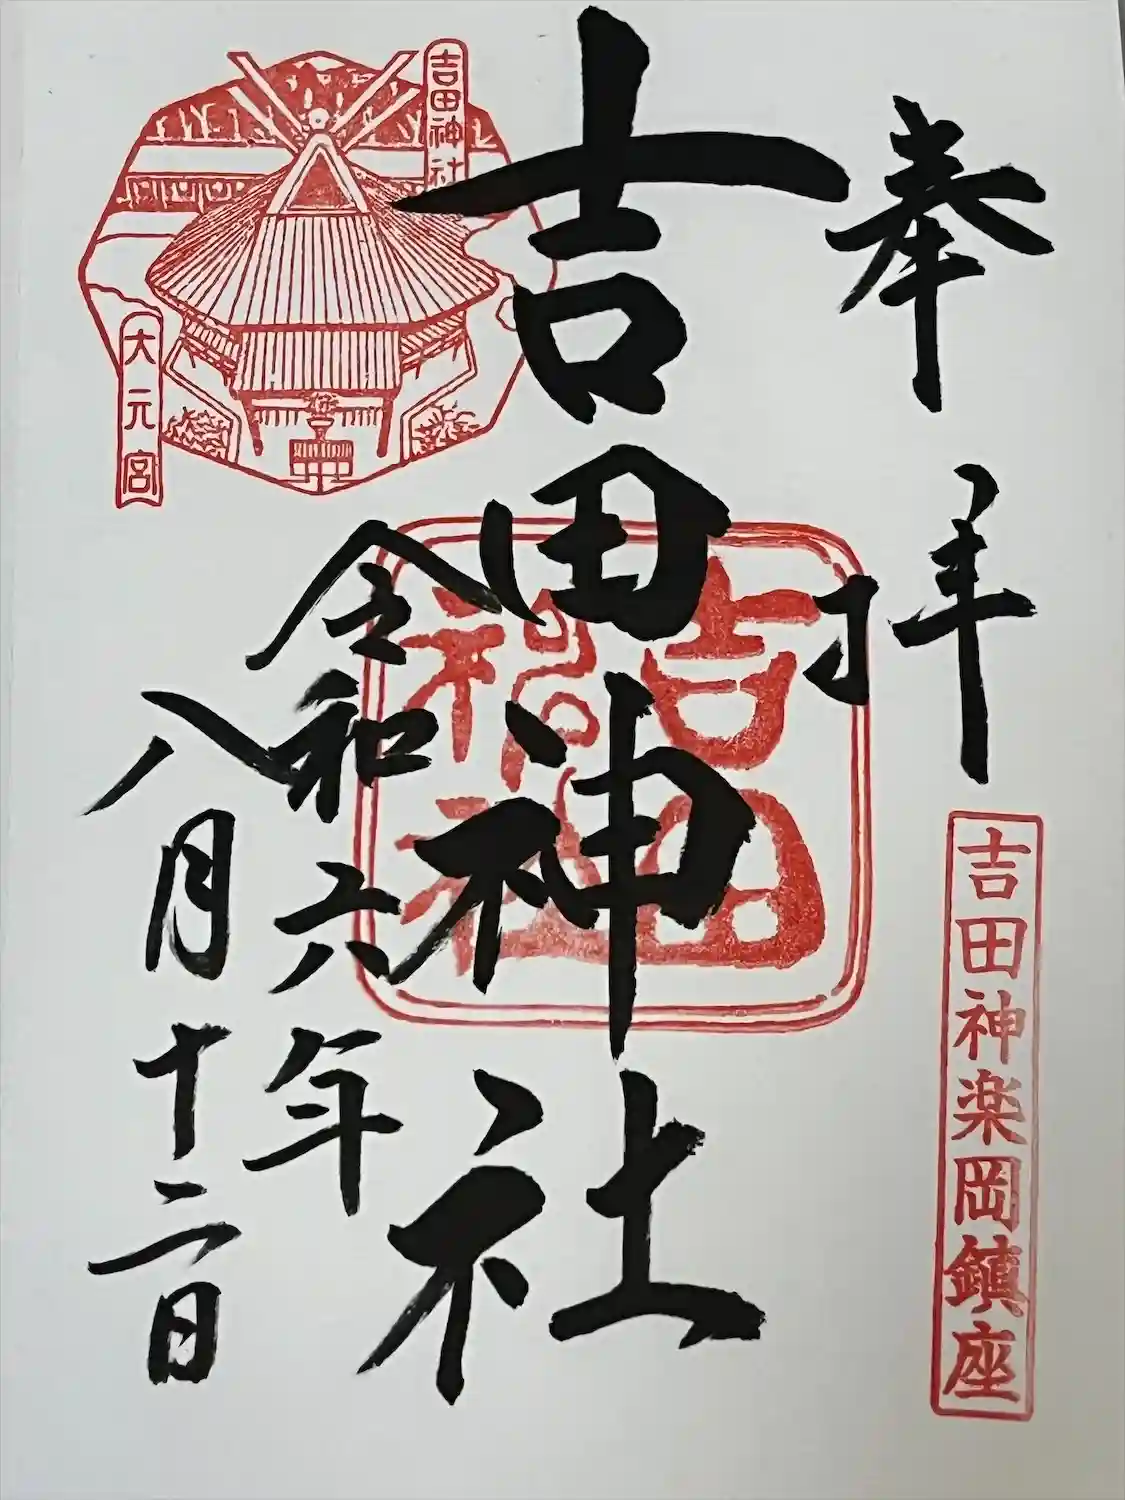 奉拝
吉田神楽岡鎮座
吉田神社
吉田神社
令和六年
八月十二日
吉田神社
大元宮